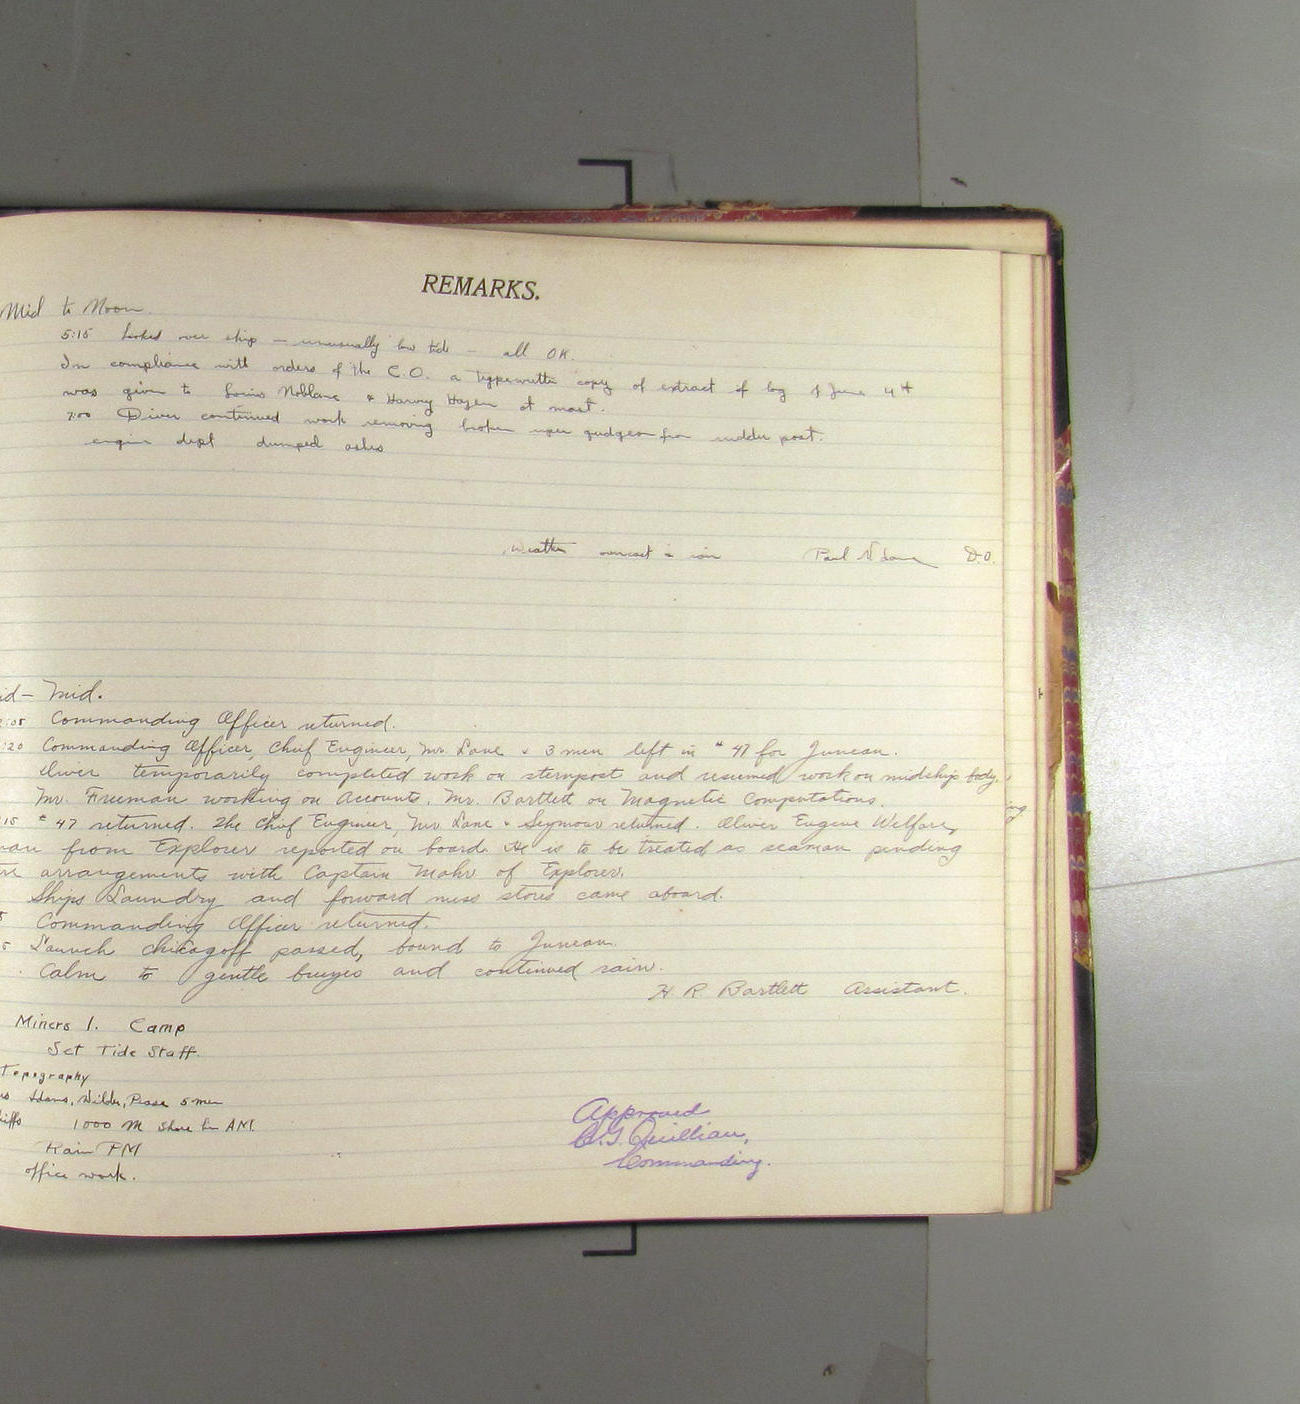 REMARKS.
Mid to Noon.
5:15 Looked over ship — unusually low tide — all OK.
In compliance with orders of the C.O. a typewritten copy of extract of log of June 4th
was given to Louis Noblanc & Harvey Hazen at mast.
7:00 Diver continued work removing broken upper gudgeon from rudder post.
engine dept dumped ashes
Weather overcast & rain Paul D.O.
Mid.
Commanding Officer returned.
:20 Commanding Officer, Chief Engineer, Mr. Lane & 3 men left in #47 for Juneau.
Diver temporarily completed work on sternpost and resumed work on midship body.
Mr. Freeman working on Accounts. Mr. Bartlett on Magnetic Computations.
:15 #47 returned. The Chief Engineer, Mr Lane & Seymour returned. Oliver Eugene Welfare,
from Explorer reported on board. He is to be treated as seaman pending
arrangements with Captain Mahr of Explorer.
Ships Laundry and forward mess stores came aboard.
Commanding Officer returned.
5 Launch Chikagoff passed, bound to Juneau.
Calm to gentle breezes and continued rain.
H R Bartlett Assistant.
Miners I. Camp
Set Tide Staff.
Topography
Adams, Wilder, 5 men
1000 M Shore line AM.
Rain PM
office work.
Approved
Quillian,
Commanding.